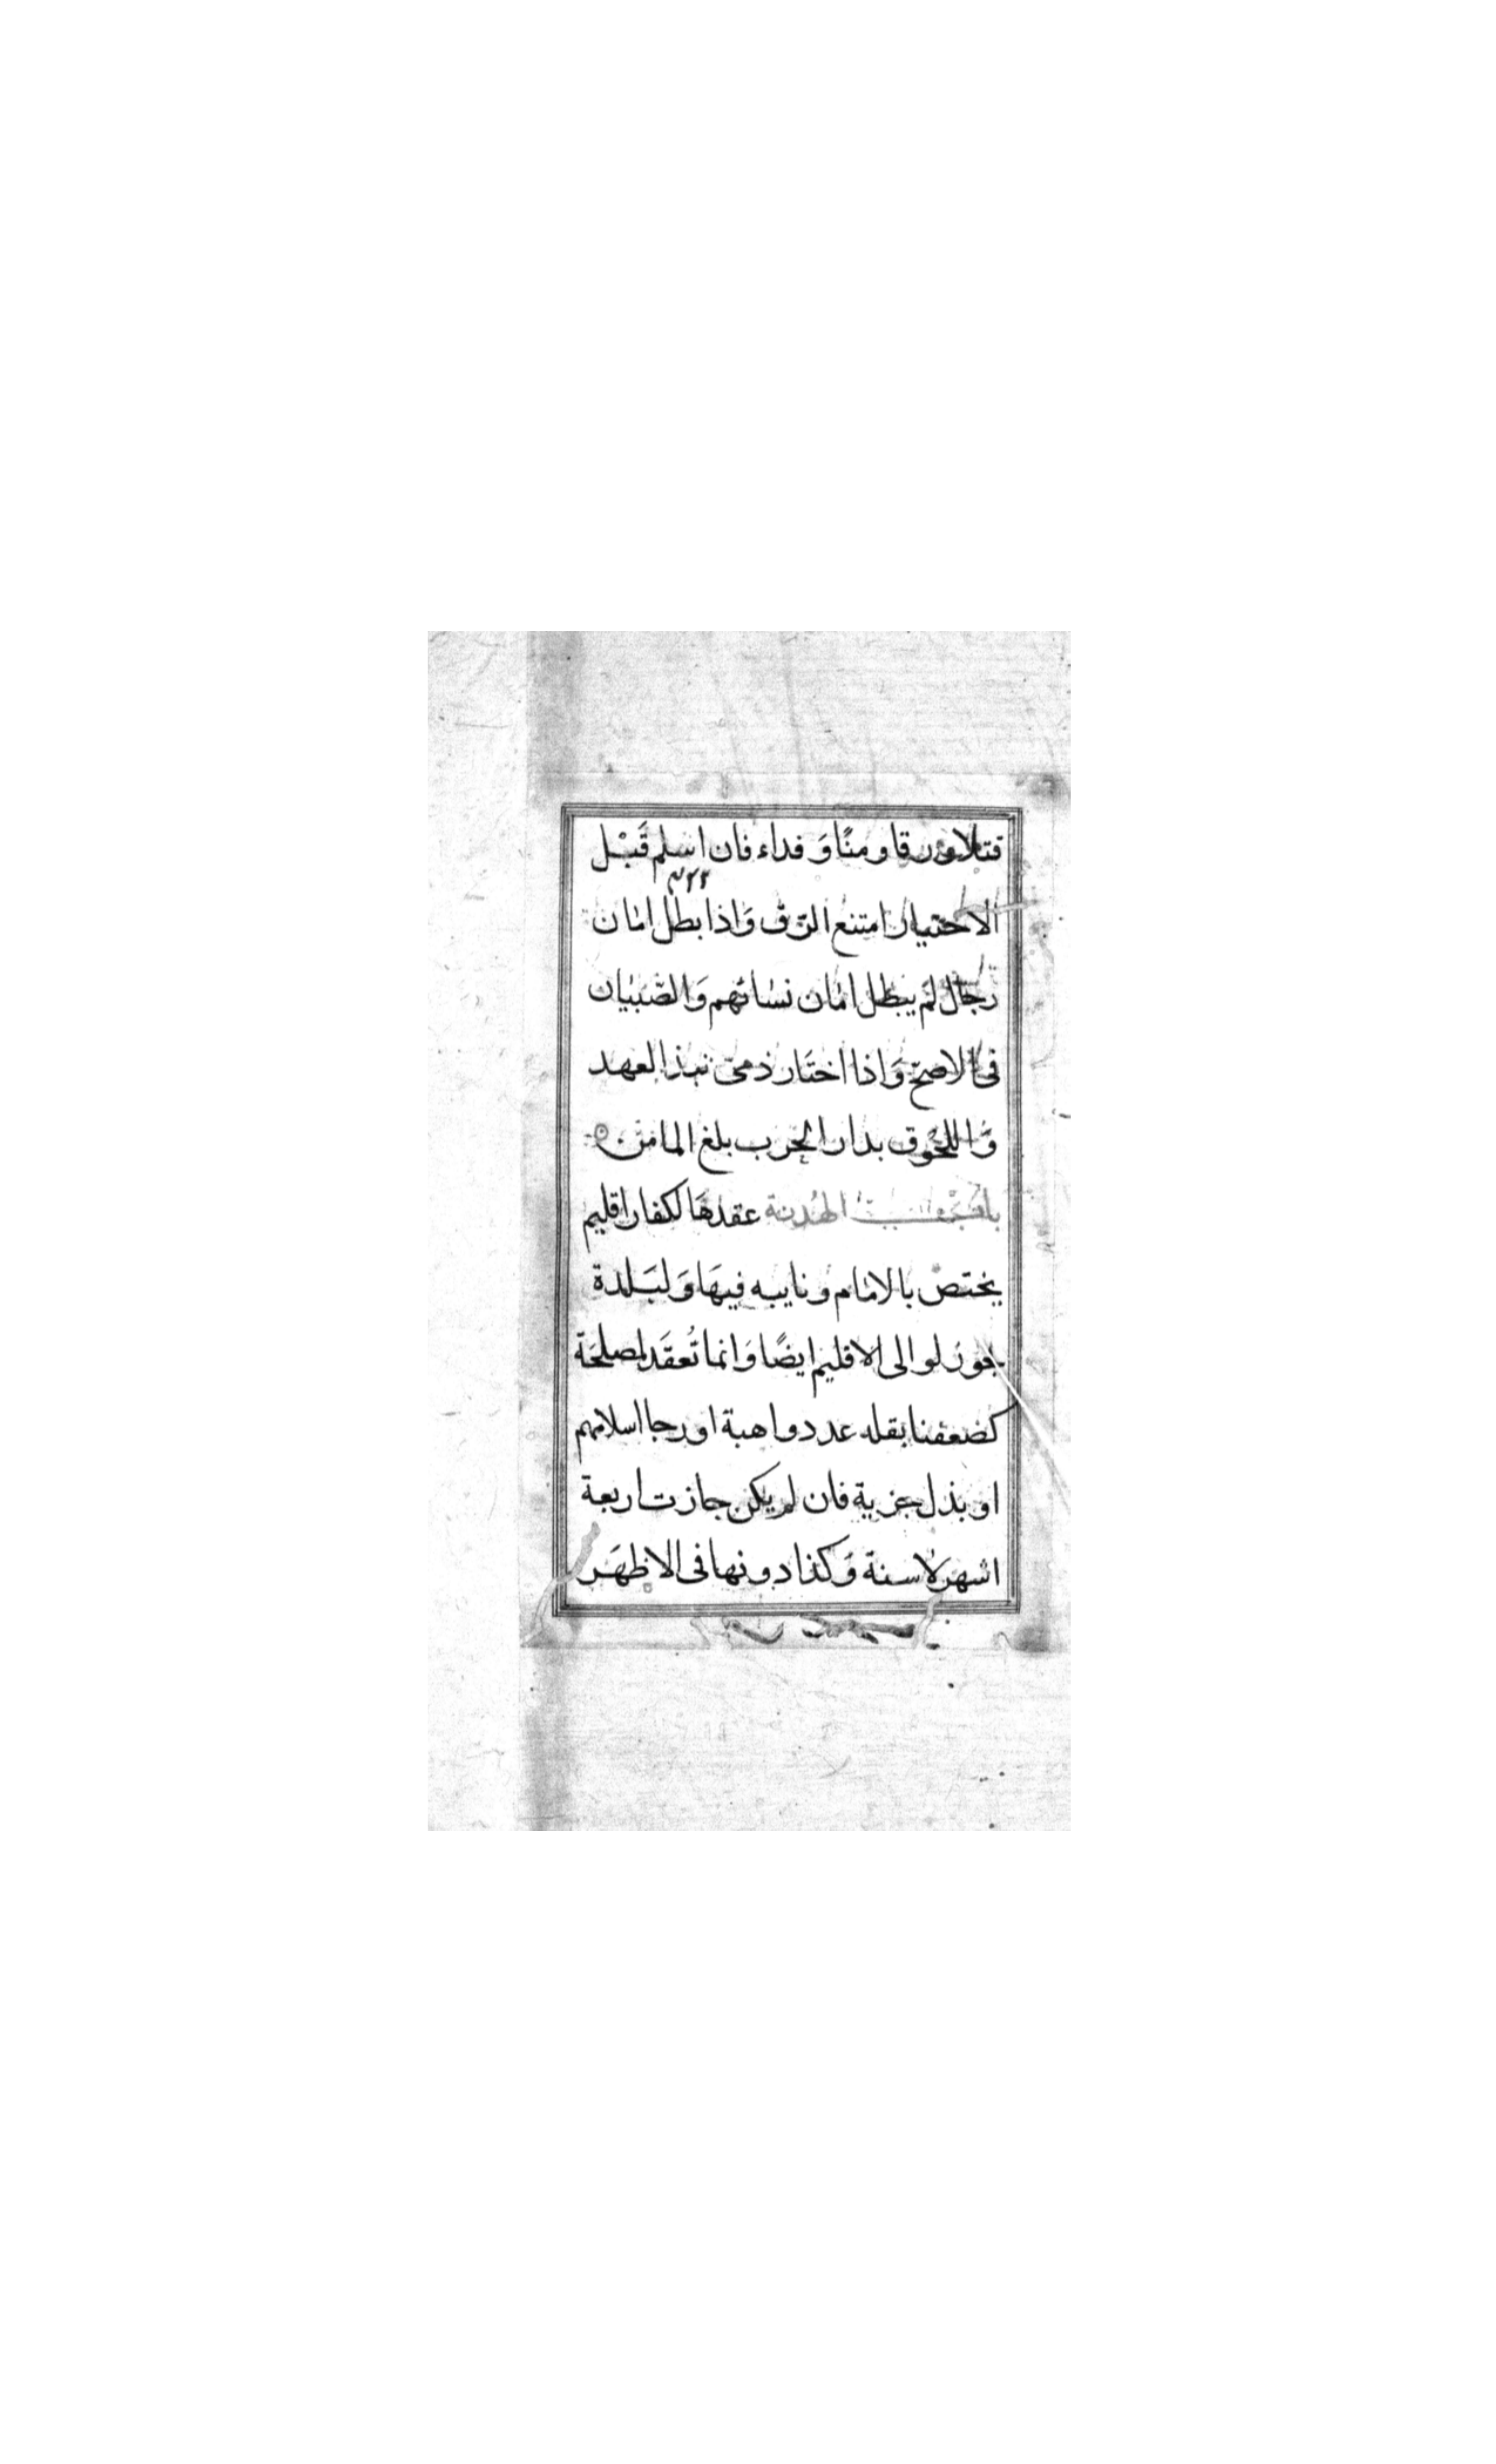 قتلا ورقا ومنًا وَ فداء فان اسلم قَبْل
الاختيار امتنع الرّق وَاذا بطل امان
رجال لم يبطل امان نسائهم وَالصّبيان
فى الاصحّ وَاذا اختَار ذمىّ نبذ العهد
وَاللحُوق بدار الحَرب بلغ المامن
باب الهُدنة عقدهَا لكفار اقليم
يختص بالامام ونايبه فيهَا وَلبَلدة
يجوز لوالى الاقليم ايضًا وَانما تُعقَد لمصلحَة
كضعفنا بقله عدد واهبة او رجا اسلامهم
او بذل جزية فان لم يكن جازت اربعة
اشهر لا سنة وَكذا دونها فى الاظهَر